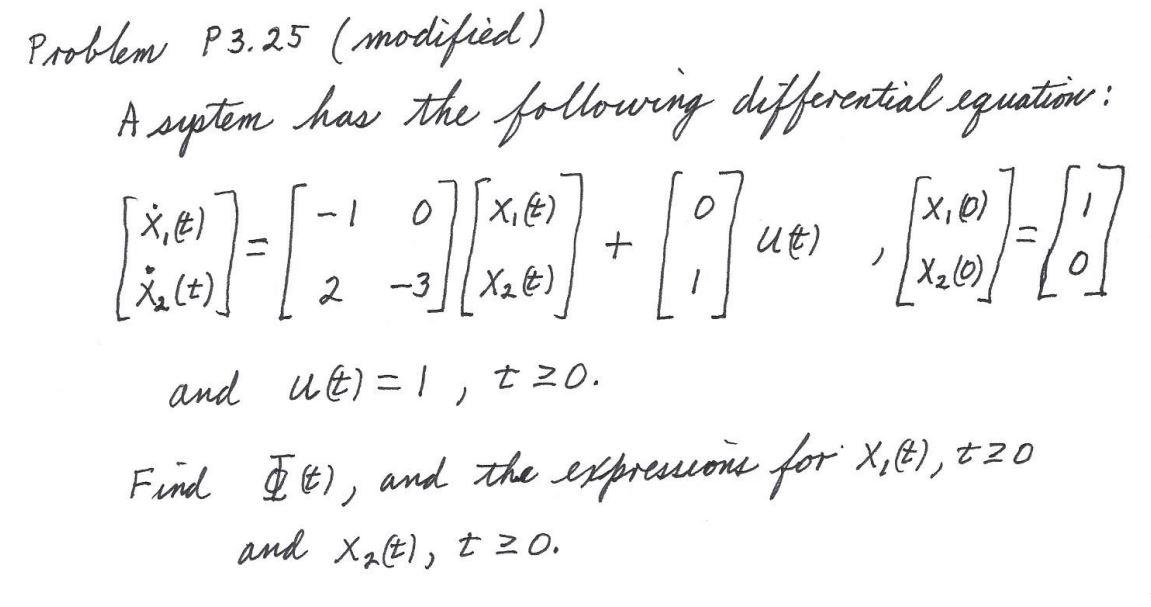 Problem P3.25 (modified)
A system has the following differential equation:
[ẋ₁(t) ẋ₂(t)] = [-1 0 2 -3] [x₁(t) x₂(t)] + [0 1] u(t) , [x₁(0) x₂(0)] = [1 0]
and u(t) = 1 , t ≥ 0.
Find Φ(t), and the expressions for x₁(t), t ≥ 0
and x₂(t), t ≥ 0.